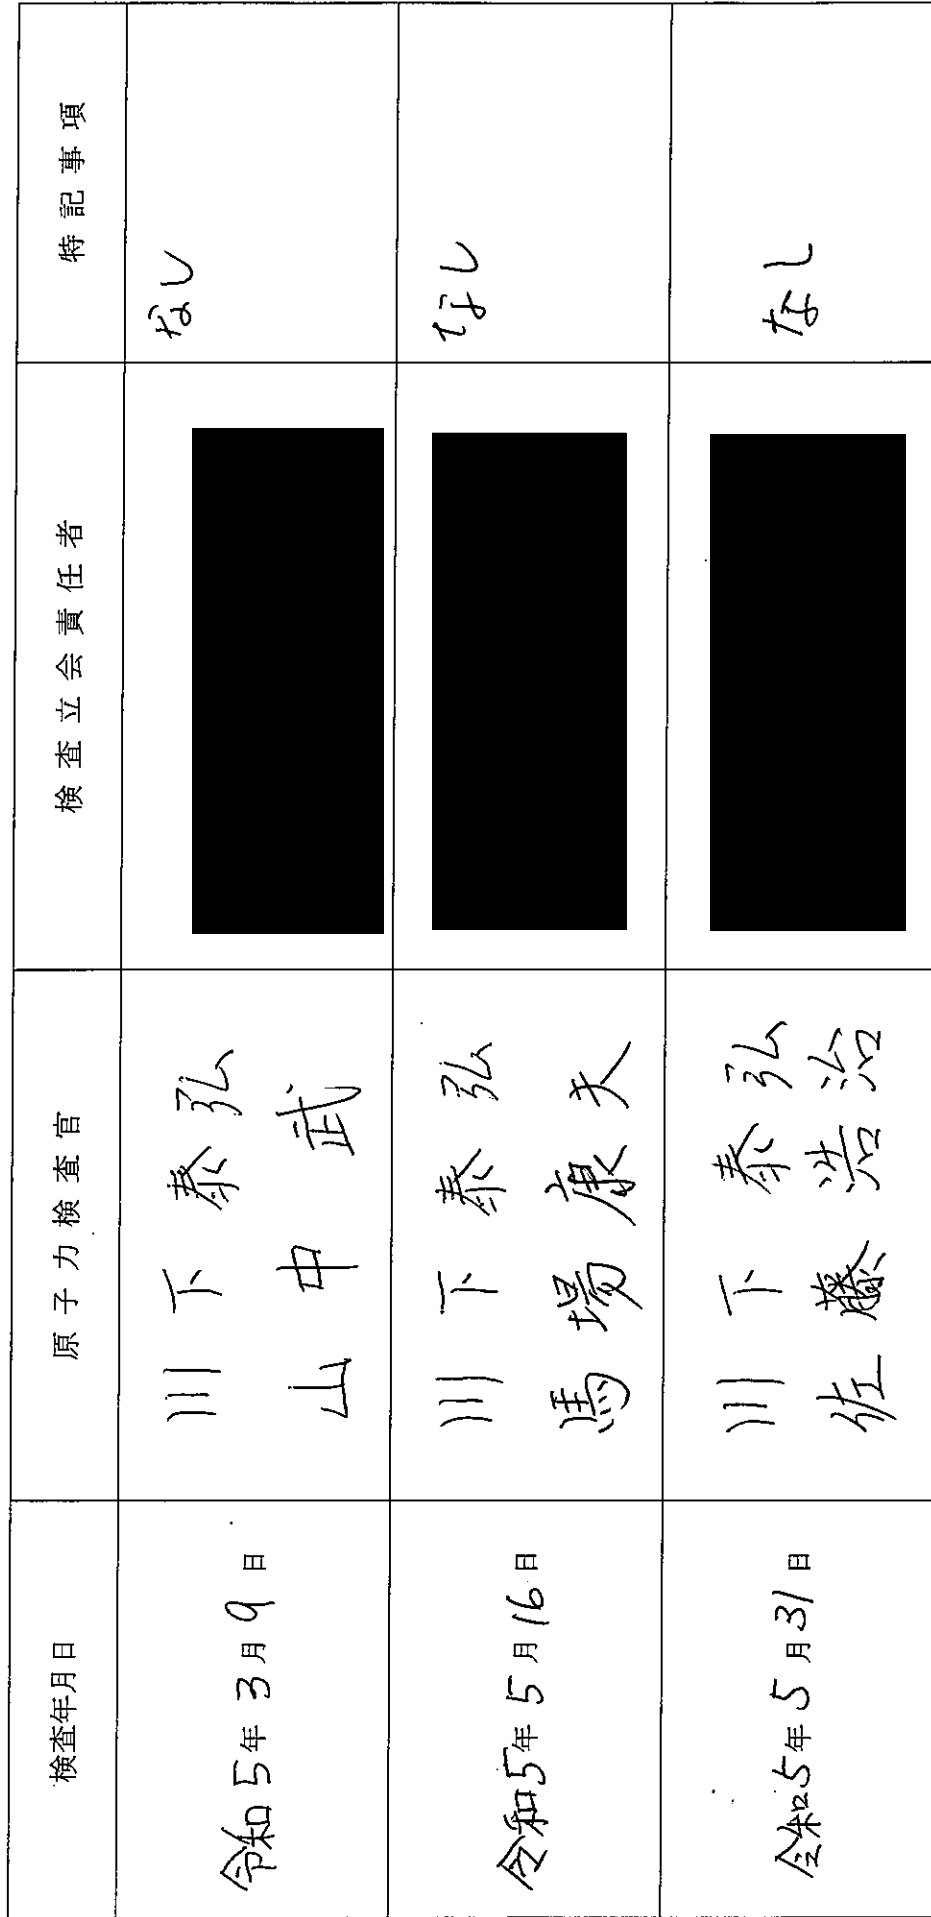 検査年月日 原子力検査官 検査立会責任者 特記事項
令和5年3月9日 川下泰弘 なし
山中武
令和5年5月16日 川下泰弘 なし
馬場康夫
令和5年5月31日 川下泰弘 なし
佐藤浩治